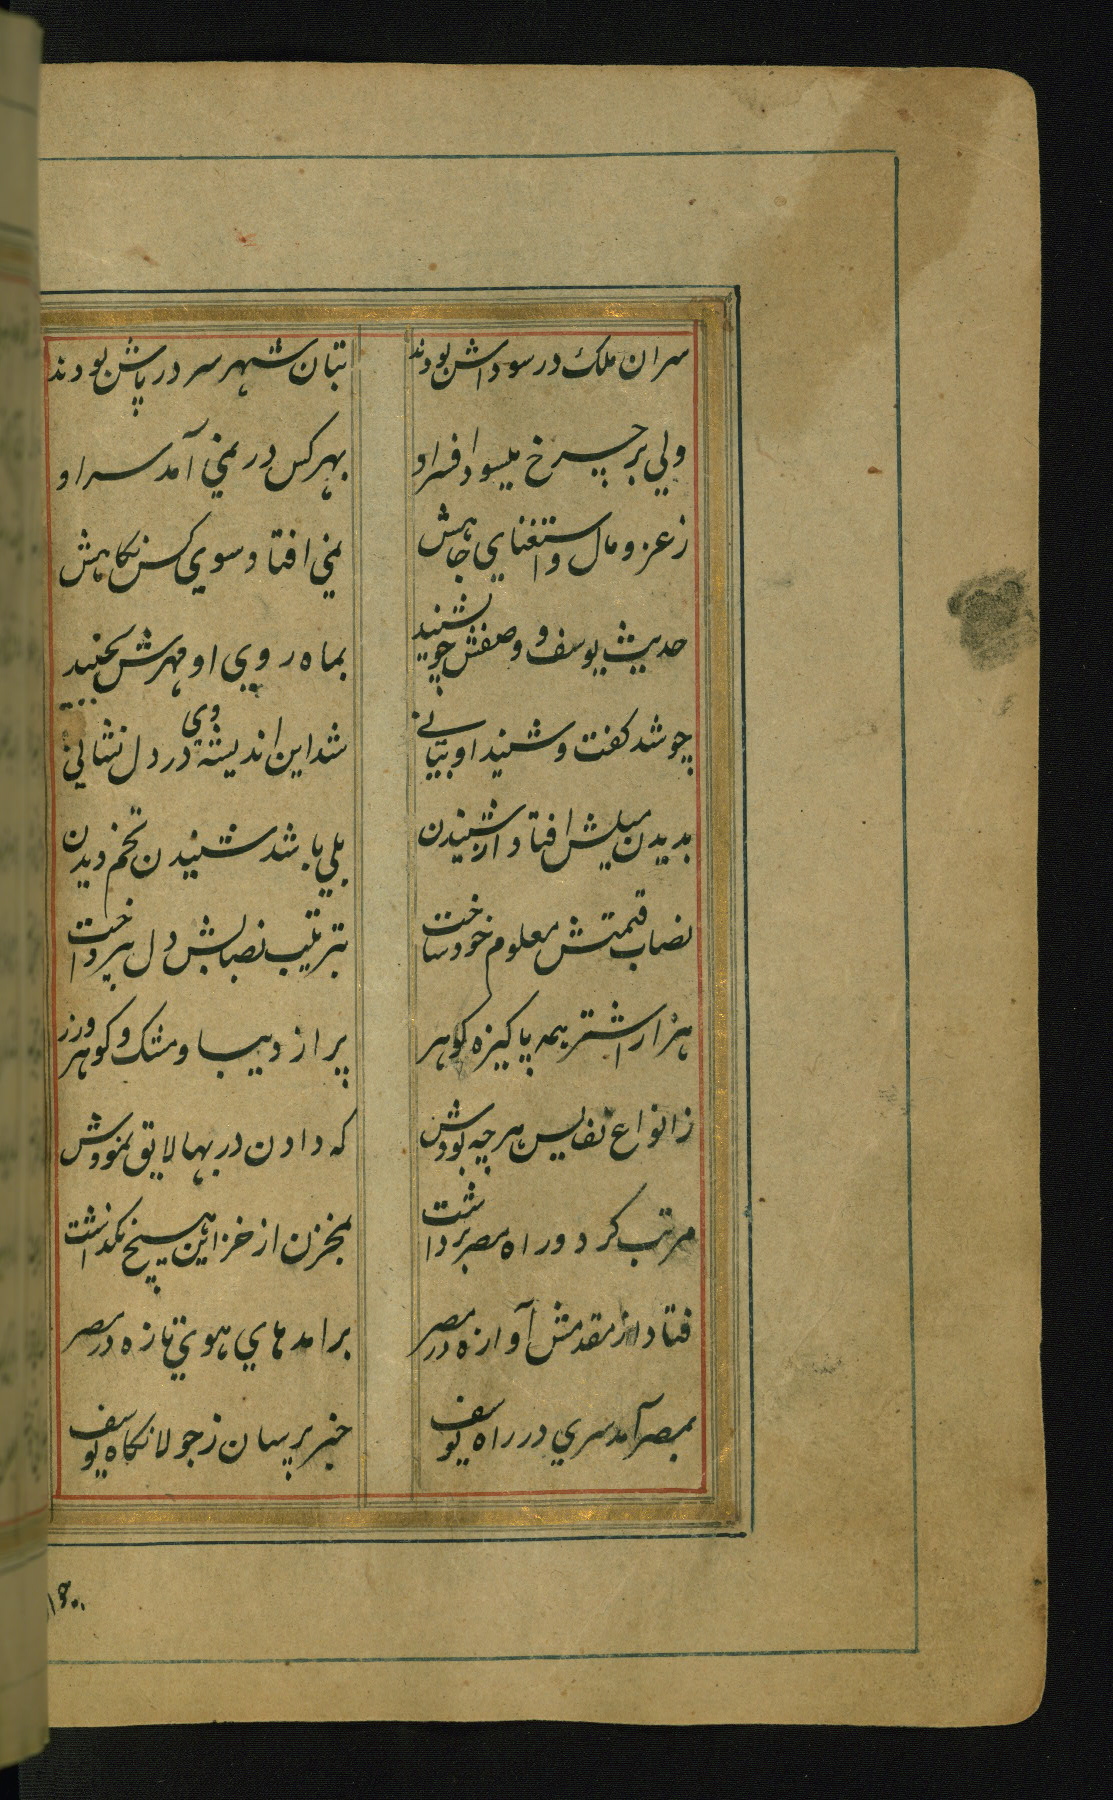 سران ملک در سوداش بودند
بتان شهر سر در پاش بودند
ولی بر چرخ میسود افسر او
بهر کس در نمی آمد سر او
ز عز و مال و استغنای جاهش
نمی افتاد سوی کس نکاهش
حدیث یوسف و وصفش چو بشنید
بماه روی او مهرش بجنبید
چو شد کفت و شنید او بیانی
شد این اندیشهٔ وی در دل نشانی
بدیدن میلش افتاد از شنیدن
بلی باشد شنیدن تخم دیدن
نصاب قیمتش معلوم خود ساخت
بترتیب نصابش دل بپرداخت
هزار اشتر همه پاکیزه کوهر
پر از دیبا و مشک و کوهر و زر
ز انواع نفایس هر چه بودش
که دادن در بها لایق نمودش
مرتب کرد و راه مصر برداشت
بمخزن از خزاین هیچ نکذاشت
فتاد از مقدمش آوازه در مصر
برامد های هوی تازه در مصر
بمصر آمد سری در راه یوسف
خبر پرسان ز جولانکاه یوسف